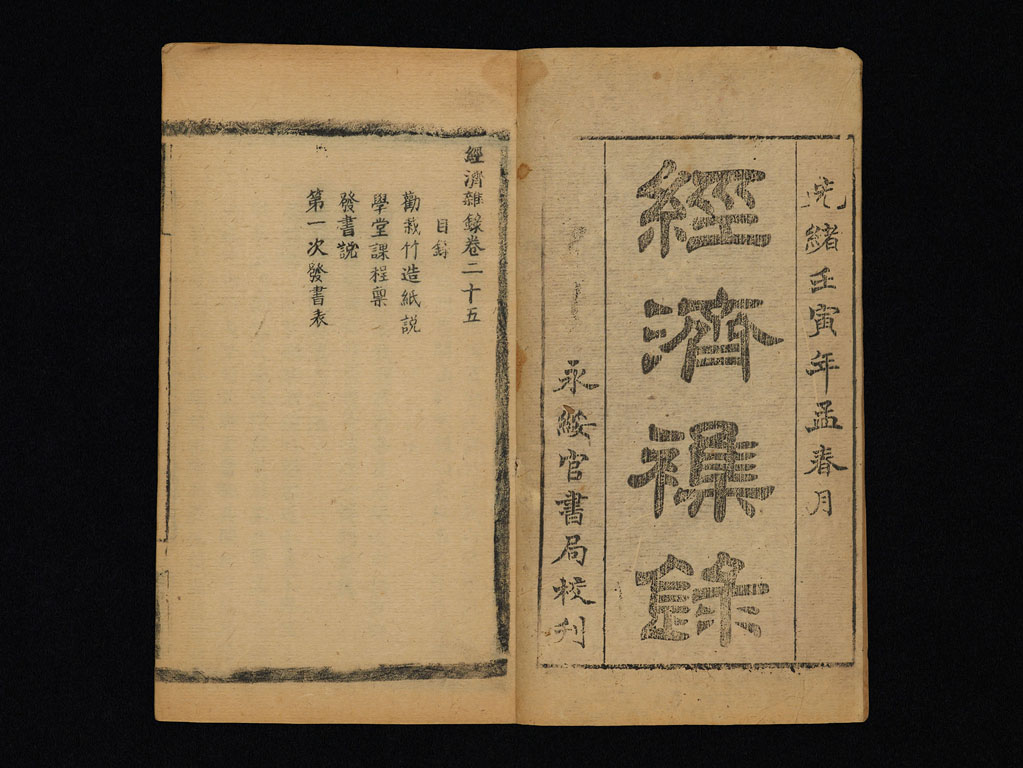 光緒壬寅年孟春月
經濟襍錄
永綏官書局校刊
經濟雜錄卷二十五
目錄
勸栽竹造紙説
學堂課程稟
發書説
第一次發書表